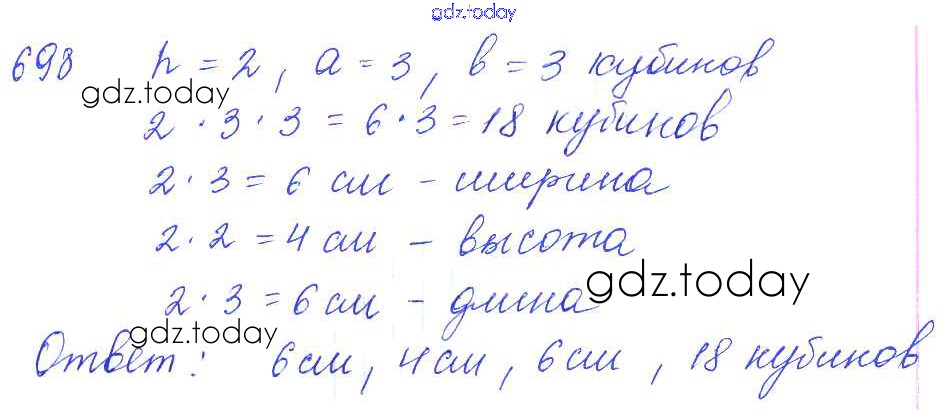 gdz.today
698 h = 2, a = 3, в = 3 кубиков
gdz.today
2 · 3 · 3 = 6 · 3 = 18 кубиков
2 · 3 = 6 см – ширина
2 · 2 = 4 см – высота
gdz.today
2 · 3 = 6 см – длина
gdz.today
Ответ: 6 см, 4 см, 6 см, 18 кубиков